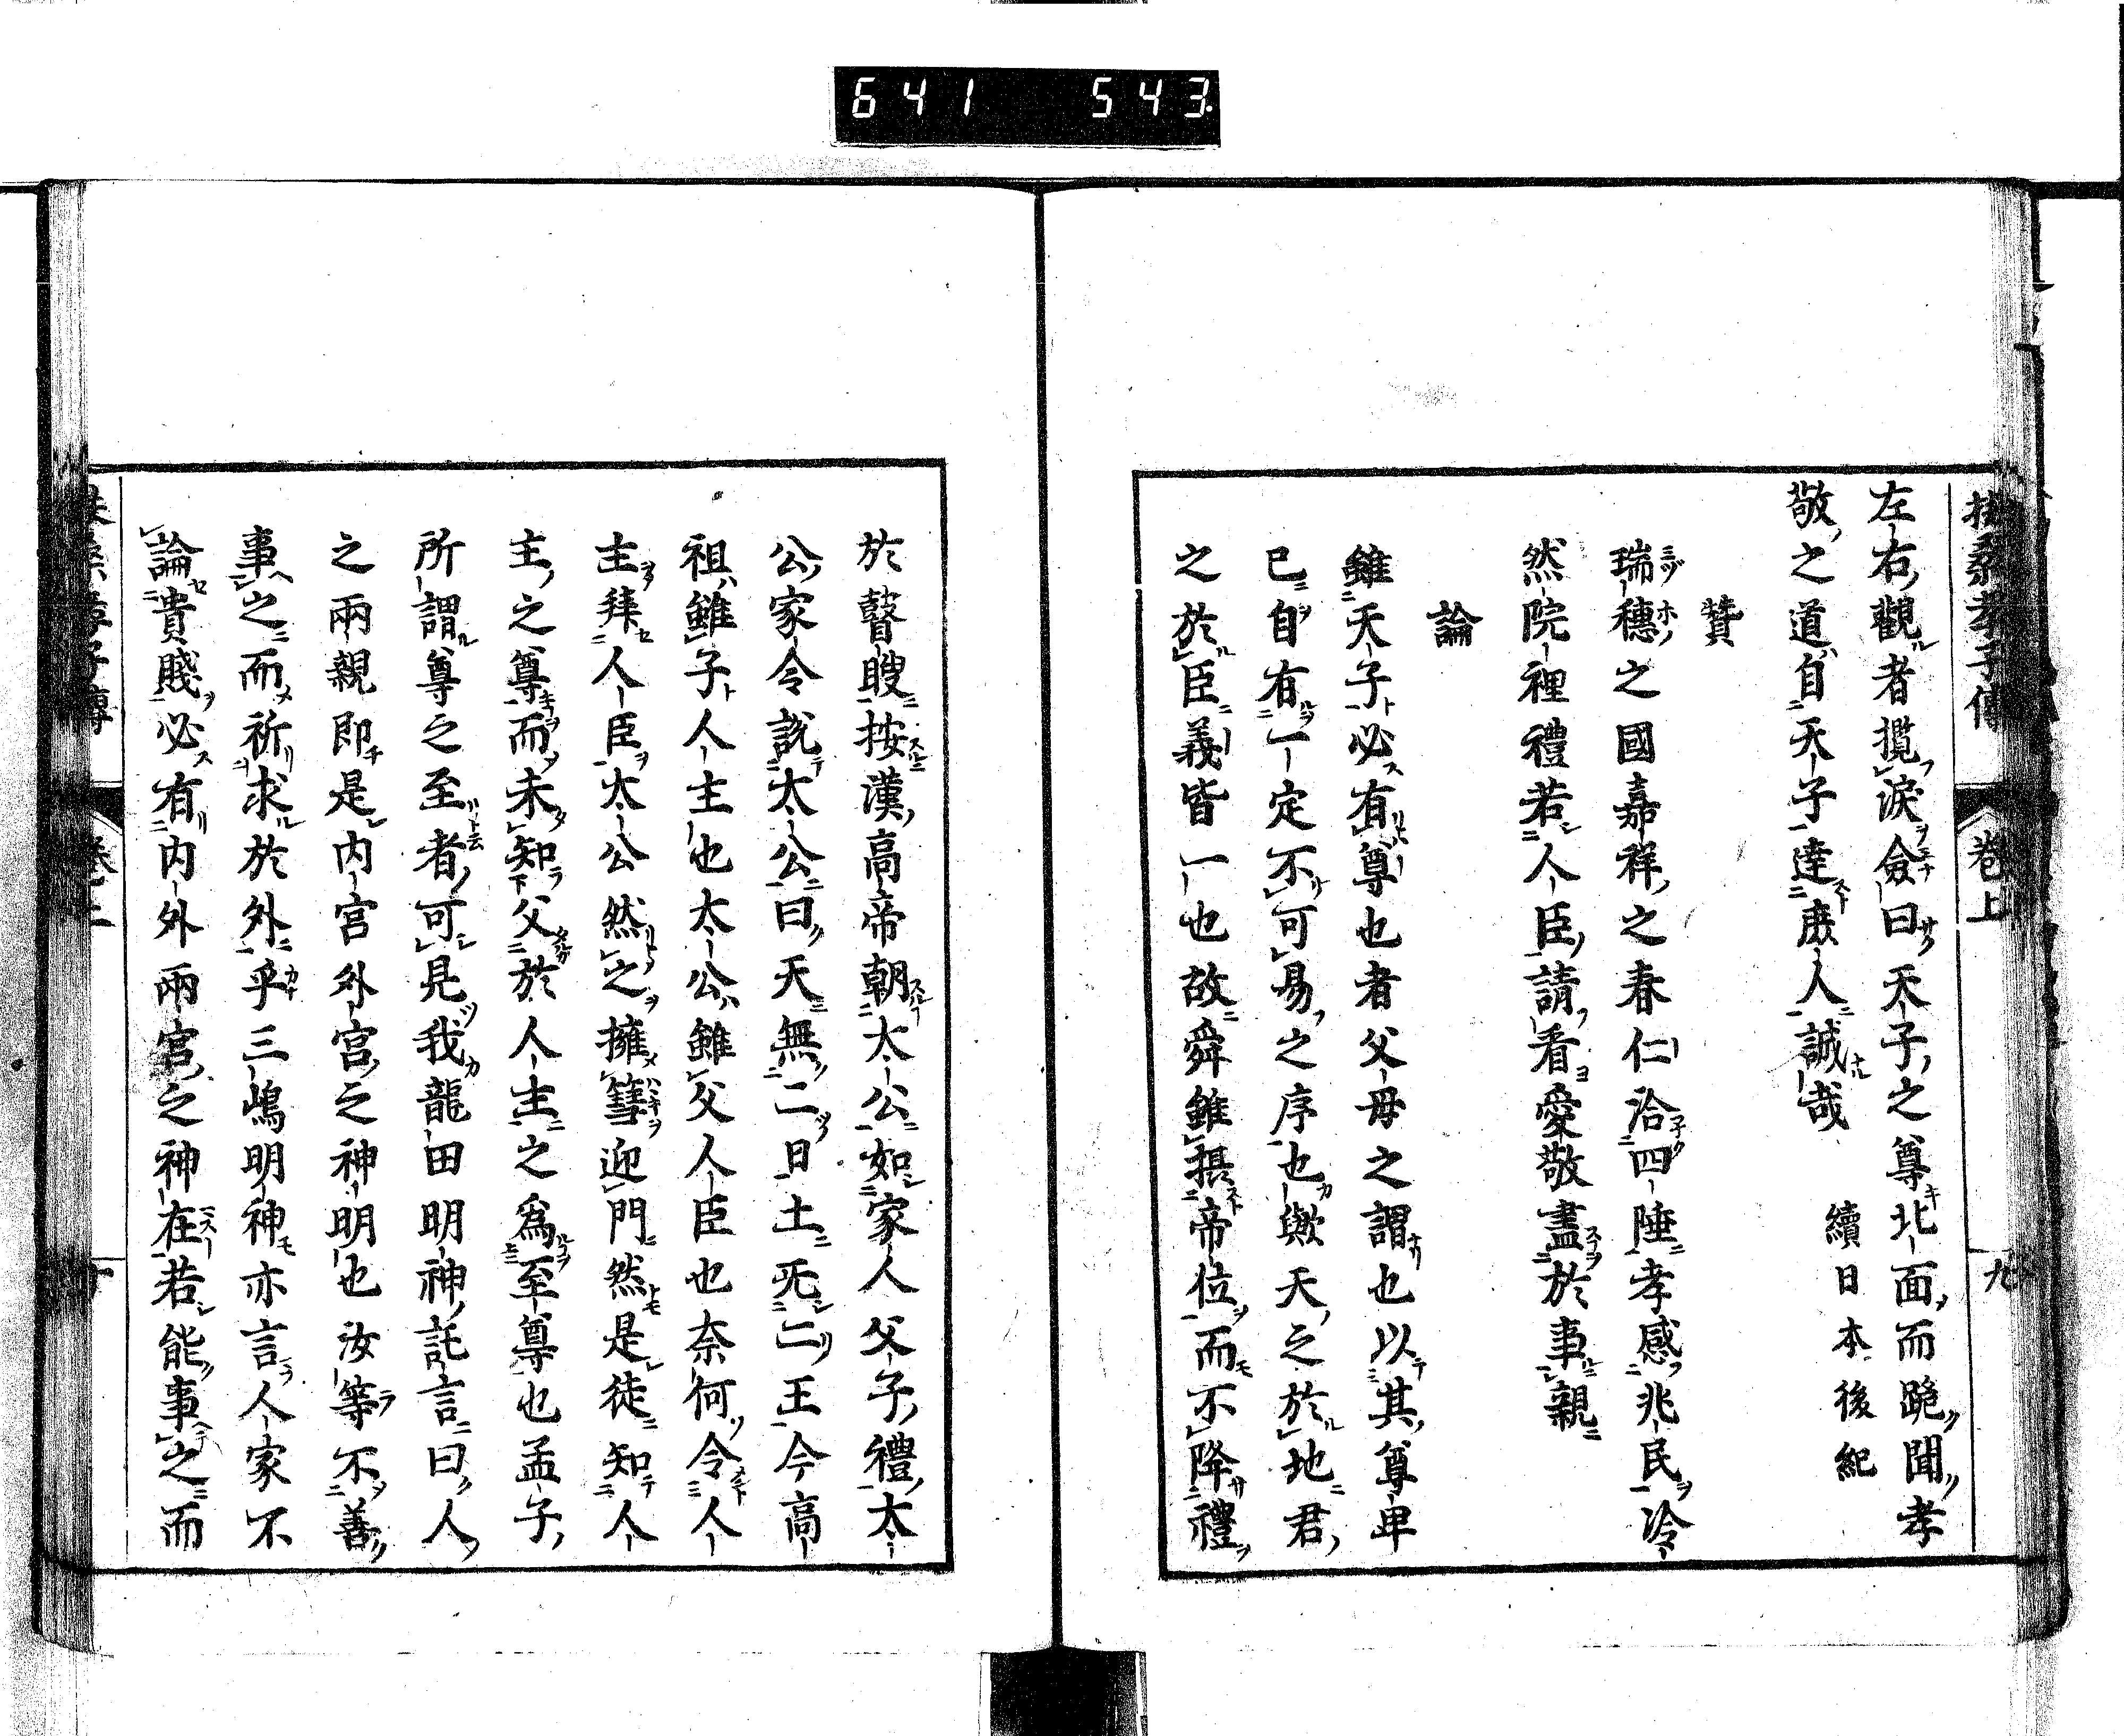 641 543
扶桑孝子傳 卷上 九
左右觀者攬淚僉曰天子之尊北面而跪聞孝
敬之道自天子達庶人誠哉 續日本後紀
贊
瑞穗之國嘉祥之春仁洽四陲孝感兆民冷
然院裡禮若人臣請看愛敬盡於事親
論
雖天子必有尊也者父母之謂也以其尊卑
已自有一定不可易之序也歟天之於地君
之於臣義皆一也故舜雖揖帝位而不降禮
於瞽瞍按漢高帝朝太公如家人父子禮太
公家令說太公曰天無二日土死二王今高
祖雖子人主也太公雖父人臣也奈何令人
主拜人臣太公然之擁篲迎門然是徒知人
主之尊而未知父於人主之爲至尊也孟子
所謂尊之至者可見我龍田明神託言曰人
之兩親即是内宮外宮之神明也汝等不善
事之而祈求於外乎三嶋明神亦言人家不
論貴賤必有内外兩宮之神在若能事之而